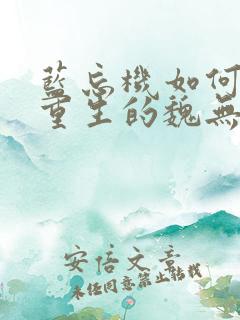 藍忘機如何
重生的魏無
安倍文章
未经同意禁止转载